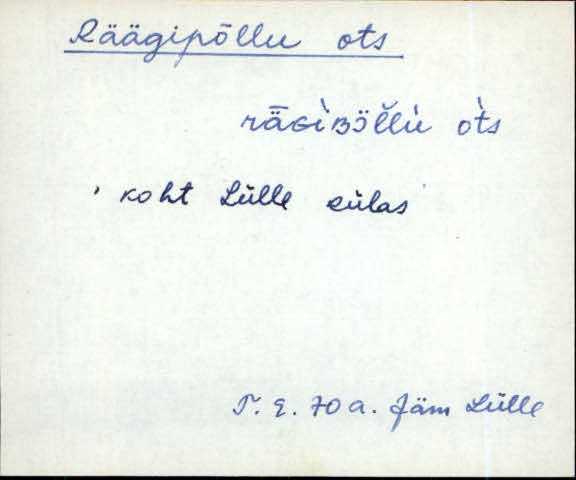 Räägipõllu ots
rāɢìʙö̀l̆lù òts
' koht Lülle külas '
T. E. 70 a. Jäm Lülle